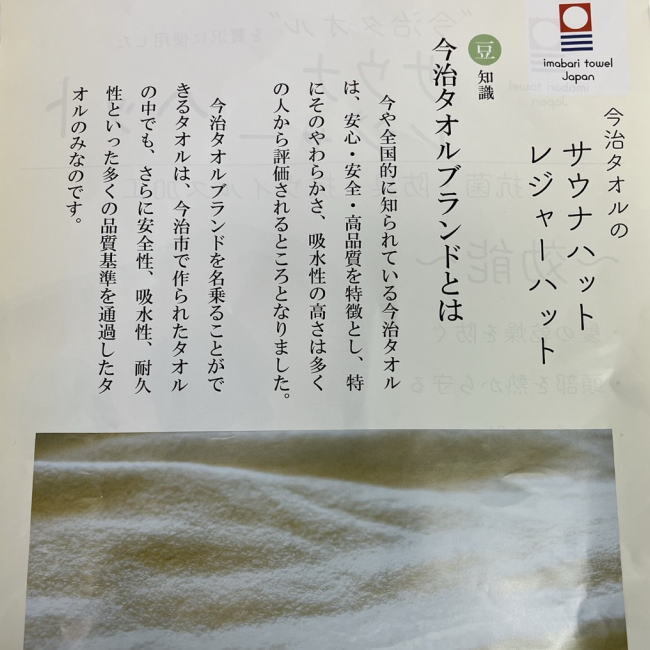 imabari towel
Japan
今治タオルの
サウナハット
レジャーハット
豆知識
今治タオルブランドとは
今や全国的に知られている今治タオル
は、安心・安全・高品質を特徴とし、特
にそのやわらかさ、吸水性の高さは多く
の人から評価されるところとなりました。
今治タオルブランドを名乗ることがで
きるタオルは、今治市で作られたタオル
の中でも、さらに安全性、吸水性、耐久
性といった多くの品質基準を通過したタ
オルのみなのです。